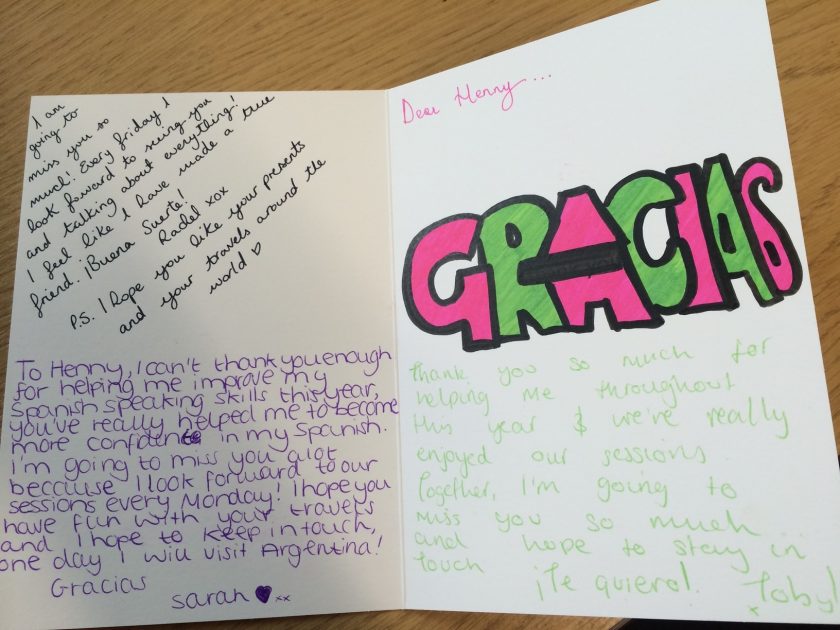 I am
going to
miss you so
much! Every friday I
look forward to seeing you
and talking about everything!
I feel like I have made a true
friend. ¡Buena Suerte!
xox
P.S. I hope you like your presents
and your travels around the
world ♡
To Henny, I can't thank you enough
for helping me improve my
Spanish speaking skills this year,
you've really helped me to become
more confident in my Spanish.
I'm going to miss you alot
because I look forward to our
sessions every Monday! I hope you
have fun with your travels
and I hope to keep in touch,
one day I will visit Argentina!
Gracias
sarah ♥xx
Dear Henny...
GRACIAS
thank you so much for
helping me throughout
this year & we've really
enjoyed our sessions
together, I'm going to
miss you so much
and hope to stay in
touch
¡Te quiero! Toby!
x